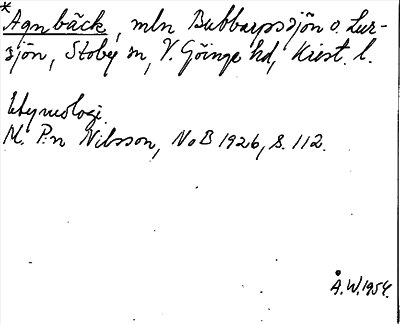 *Agnbäck, mln Bubbarpssjön o. Lur-
sjön, Stoby sn, V. Göinge hd, Krist. l.
Etymologi.
M. P:n Nilsson, NoB 1926, s. 112.
Å.W. 1954.